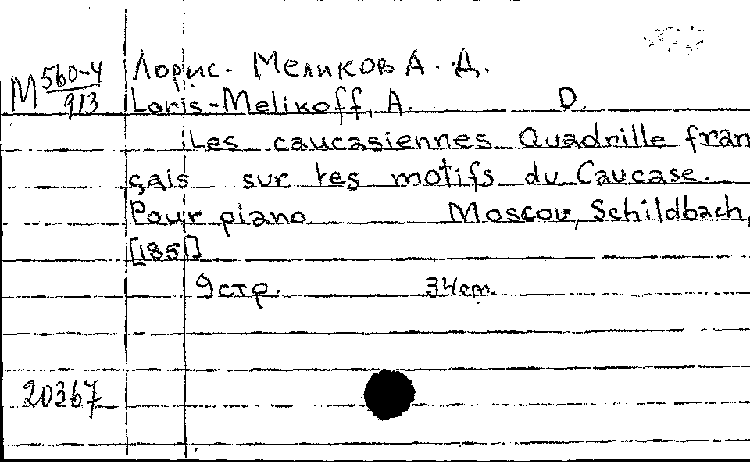 М 560-4/913
Лорис-Меликов А. Д.
Loris-Melikoff, A. D.
Les caucasiennes Quadrille fran
çais sur les motifs du Caucase.
Pour piano Moscou, Schildbach,
[185]
9 стр. 34 cm.
20367